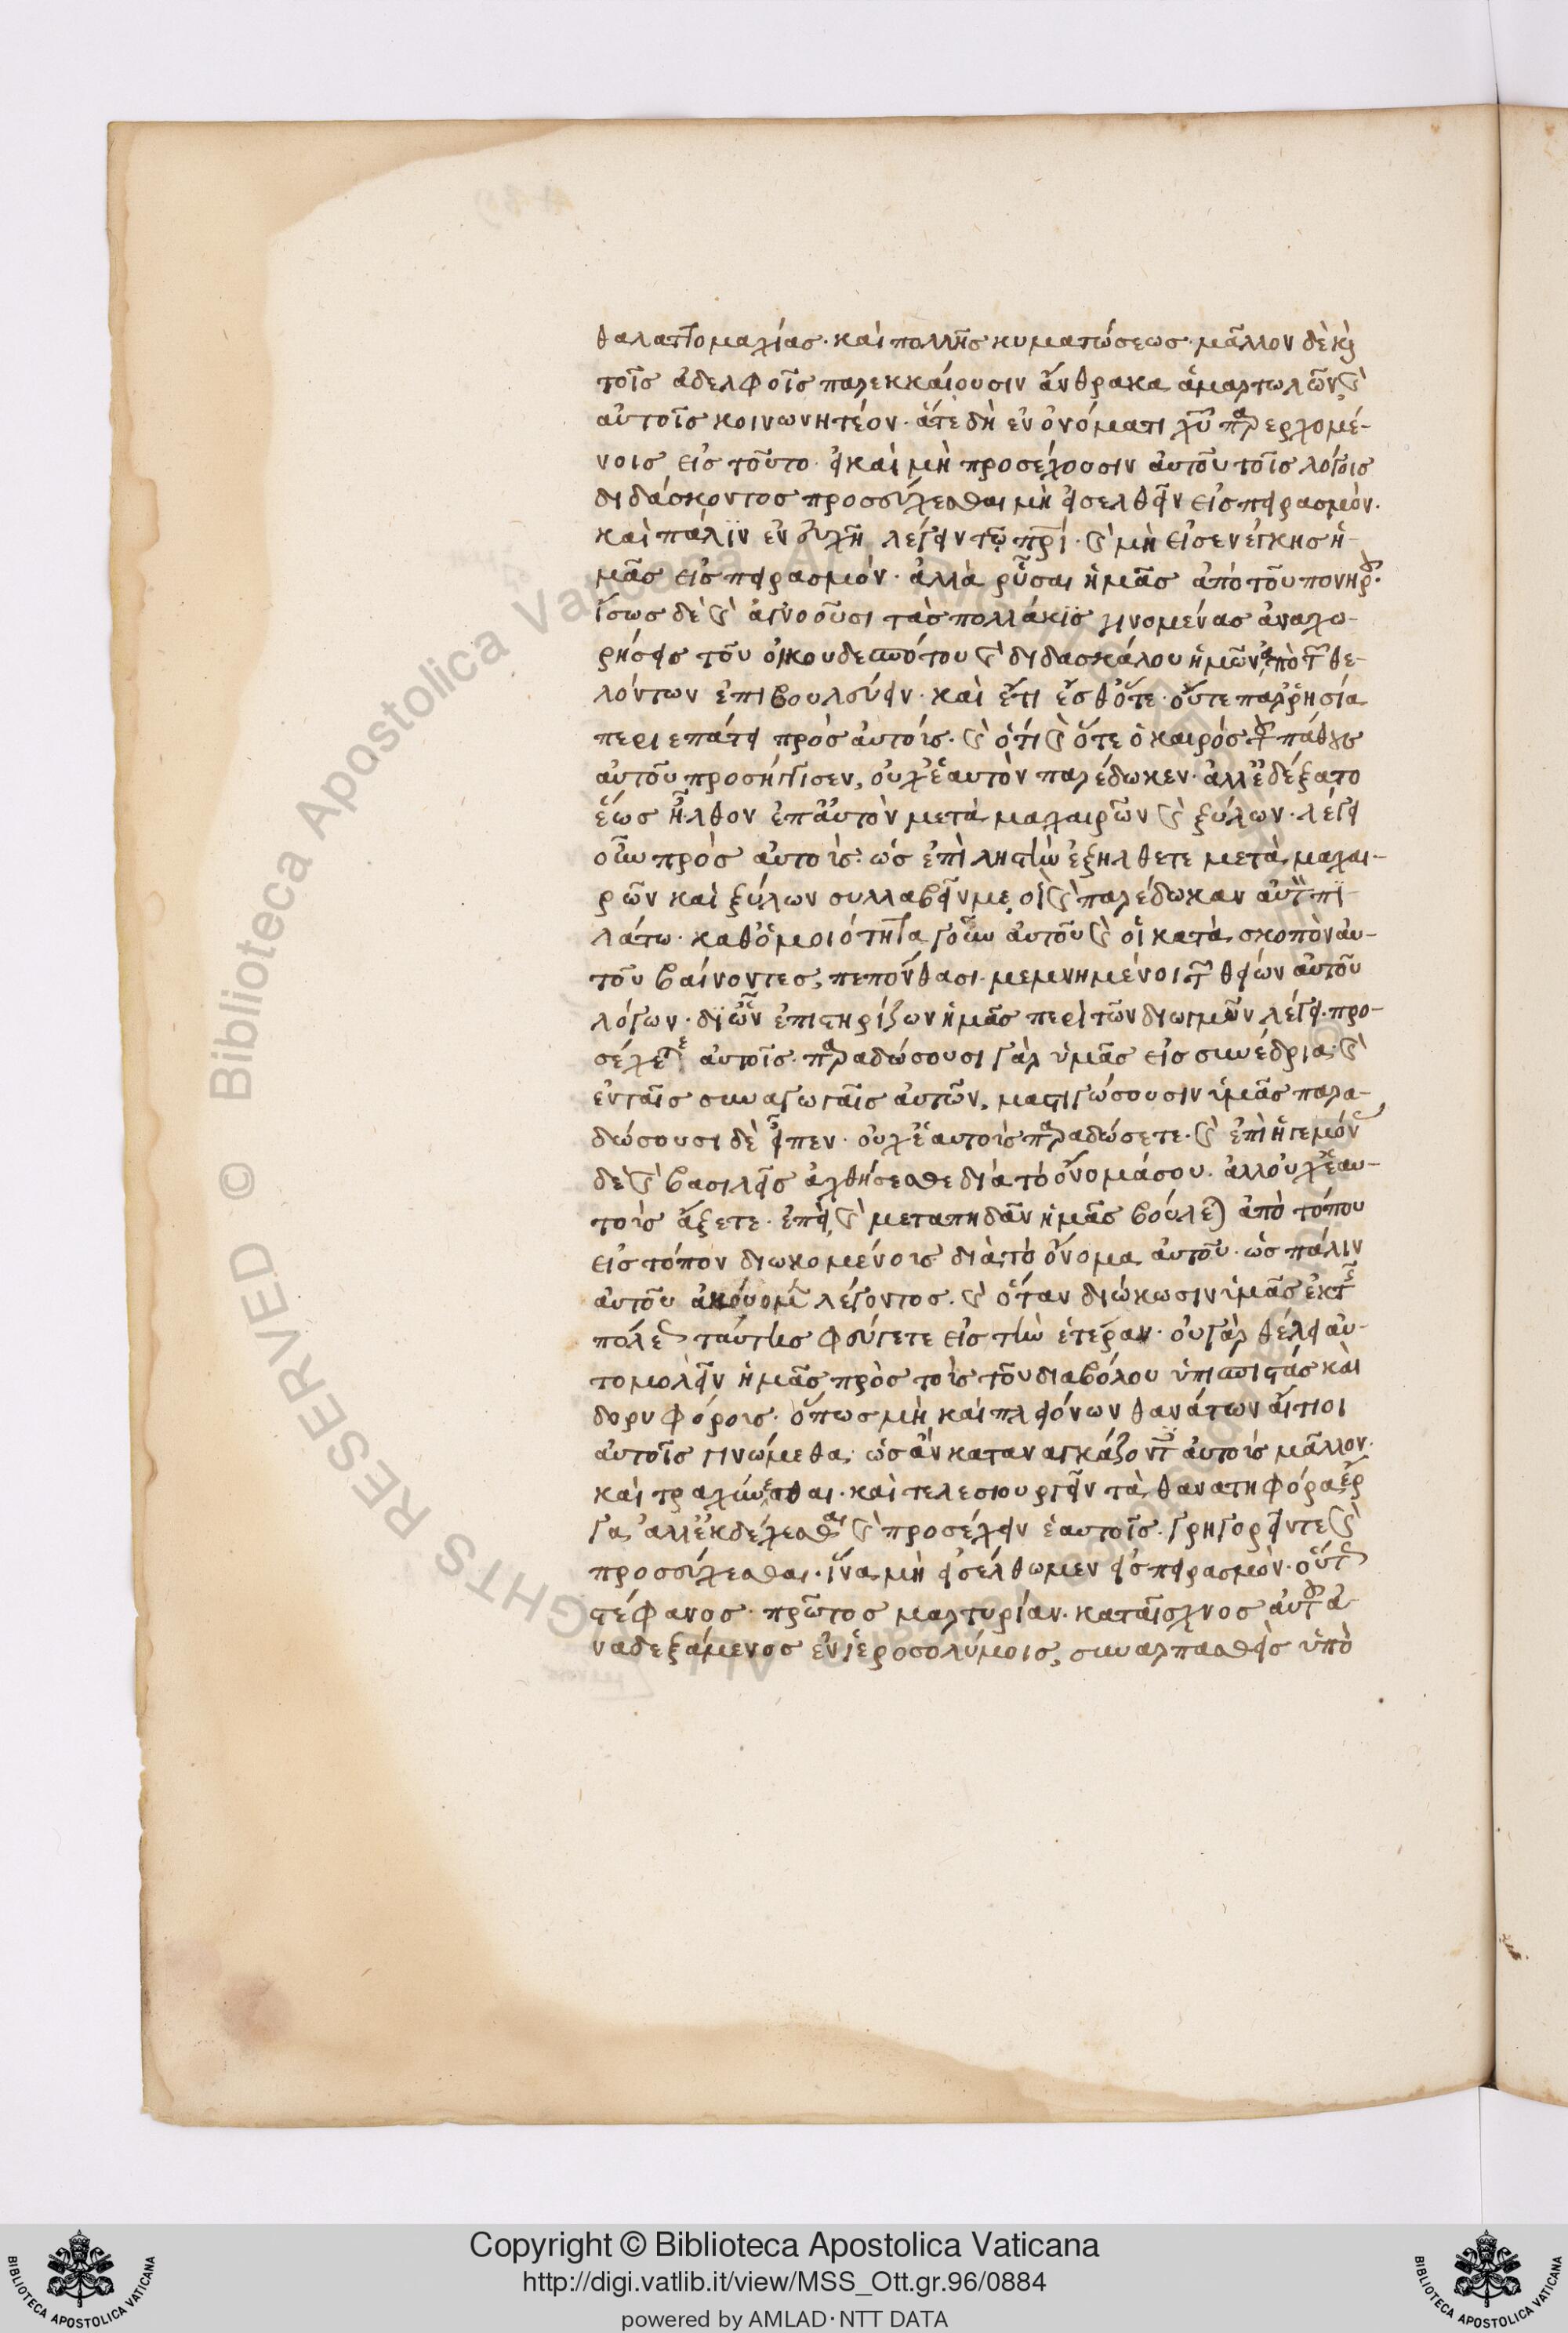 θαλαττομαχίας· καὶ πολλῆς κυματώσεως· μᾶλλον δὲ κὶ
τοῖς ἀδελφοῖς παρεκκαίουσιν ἄνθρακα ἁμαρτωλῶν, καὶ
αὐτοῖς κοινωνητέον· ἅτε δὴ ἐν ὀνόματι χῦ παρερχομέ-
νοις εἰς τοῦτο· εἰ καὶ μὴ προσέχουσιν αὐτοῦ τοῖς λόγοις
διδάσκοντος προσεύχεσθαι μὴ εἰσελθεῖν εἰς πειρασμόν·
καὶ πάλιν ἐν εὐχῆ λέγειν τῷ πρὶ· καὶ μὴ εἰσενέγκης ἡ-
μᾶς εἰς πειρασμόν· ἀλλὰ ρῦσαι ἡμᾶς ἀπὸ τοῦ πονηροῦ·
ἴσως δὲ καὶ ἀγνοοῦσι τὰς πολλάκις γινομένας ἀναχω-
ρήσεις τοῦ οἰκουδεσπότου καὶ διδασκάλου ἡμῶν, ἀπὸ τῶν θε-
λόντων ἐπιβουλεύειν· καὶ ἔτι ἔσθ' ὅτε· οὔτε παρρησία
περιεπάτει πρὸς αὐτοίς· καὶ ὅτι καὶ ὅτε ὁ καιρὸς τοῦ πάθους
αὐτοῦ προσήγγισεν, οὐχ' ἑαυτὸν παρέδωκεν· ἀλλ' ἐδέξατο
ἕως ἦλθον ἐπ' αὐτὸν μετὰ μαχαιρῶν καὶ ξύλων· λέγει
οὖν πρὸς αὐτοις· ὡς ἐπὶ ληστὴν ἐξήλθετε μετὰ μαχαι-
ρῶν καὶ ξύλων συλλαβεῖν με, οἳ καὶ παρέδωκαν αὐτὸν πι
λάτω· καθ' ὁμοιότητα γοῦν αὐτοῦ καὶ οἱ κατὰ σκοπὸν αὐ-
τοῦ βαίνοντες, πεπόνθασι· μεμνημένοι τῶν θείων αὐτοῦ
λόγων· δι' ὧν ἐπιστηρίζων ἡμᾶς περὶ τῶν διωγμῶν λέγει· προ-
σέχετε αὐτοῖς· παραδώσουσι γὰρ ὑμᾶς εἰς συνέδρια· καὶ
ἐν ταῖς συναγωγαῖς αὐτῶν, μαστιγώσουσιν ὑμᾶς παρα-
δώσουσι δὲ εἶπεν· οὐχ' ἑαυτοις παραδώσετε· καὶ ἐπὶ ἡγεμόν
δὲ καὶ βασιλεῖς ἀχθήσεσθε διὰ τὸ ὄνομά σου· ἀλλ' οὐχ' ἑαυ-
τοις ἄξετε· ἐπεὶ καὶ μεταπηδᾶν ἡμᾶς βούλεται ἀπὸ τόπου
εἰς τόπον διωκομένοις διὰ τὸ ὄνομα αὐτοῦ· ὡς πάλιν
αὐτοῦ ἀκούομεν λέγοντος· καὶ ὅταν διώκωσιν ὑμᾶς ἐκ τῆς
πόλεως ταύτης φεύγετε εἰς τὴν ἑτέραν· οὐ γὰρ θέλει αὐ-
τομολεῖν ἡμᾶς πρὸς τοις τοῦ διαβόλου ὑπασπιστάς καὶ
δορυφόροις· ὅπως μὴ καὶ πλειόνων θανάτων αἴτιοι
αὐτοῖς γινώμεθα, ὡς ἂν καταναγκάζοντες αὐτοις μᾶλλον·
καὶ τραχύνεσθαι· καὶ τελεσιουργεῖν τὰ θανατηφόρα ἔρ
γα, ἀλλ' ἐκδέχεσθαι καὶ προσέχειν ἑαυτοῖς· γρηγορεῖν τε καὶ
προσεύχεσθαι· ἵνα μὴ εἰσέλθωμεν εἰς πειρασμόν· οὕτω
στέφανος· πρῶτος μαρτυρίαν· κατ' ἴχνος αὐτοῦ ἀ-
ναδεξάμενος ἐν ἱεροσολύμοις, συναρπασθεὶς ὑπὸ
Copyright © Biblioteca Apostolica Vaticana
http://digi.vatlib.it/view/MSS_Ott.gr.96/0884
powered by AMLAD · NTT DATA